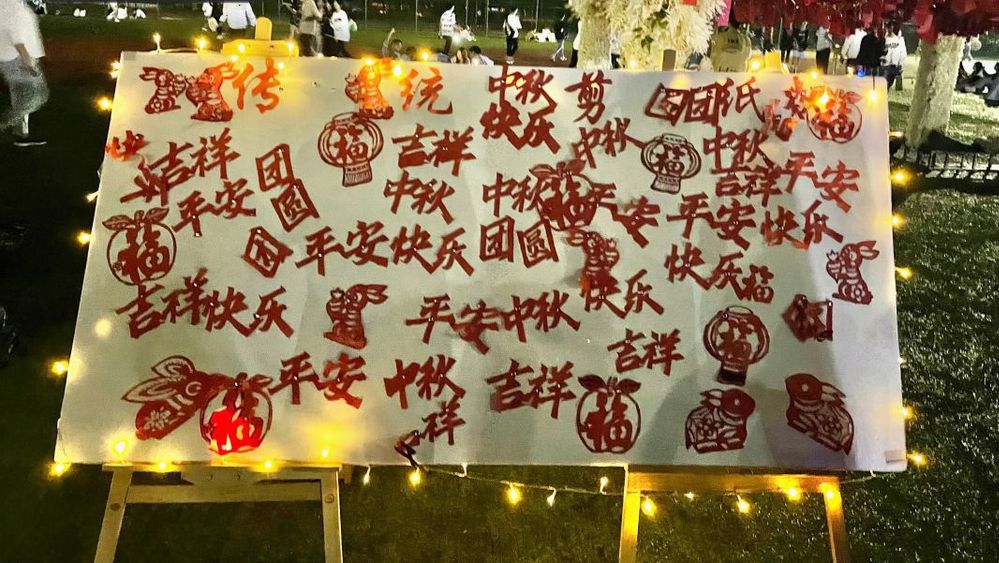 传 统 中秋 剪 团团 纸
快乐 中秋 福
福 吉祥 福 中秋
吉祥 团 吉祥 平安
平安 圆 中秋 中秋 福 平安 平安 快乐
福 团 平安快乐 团圆 快乐福
吉祥快乐 平安中秋 快乐
吉祥 福
平安 中秋 吉祥
福 祥 福